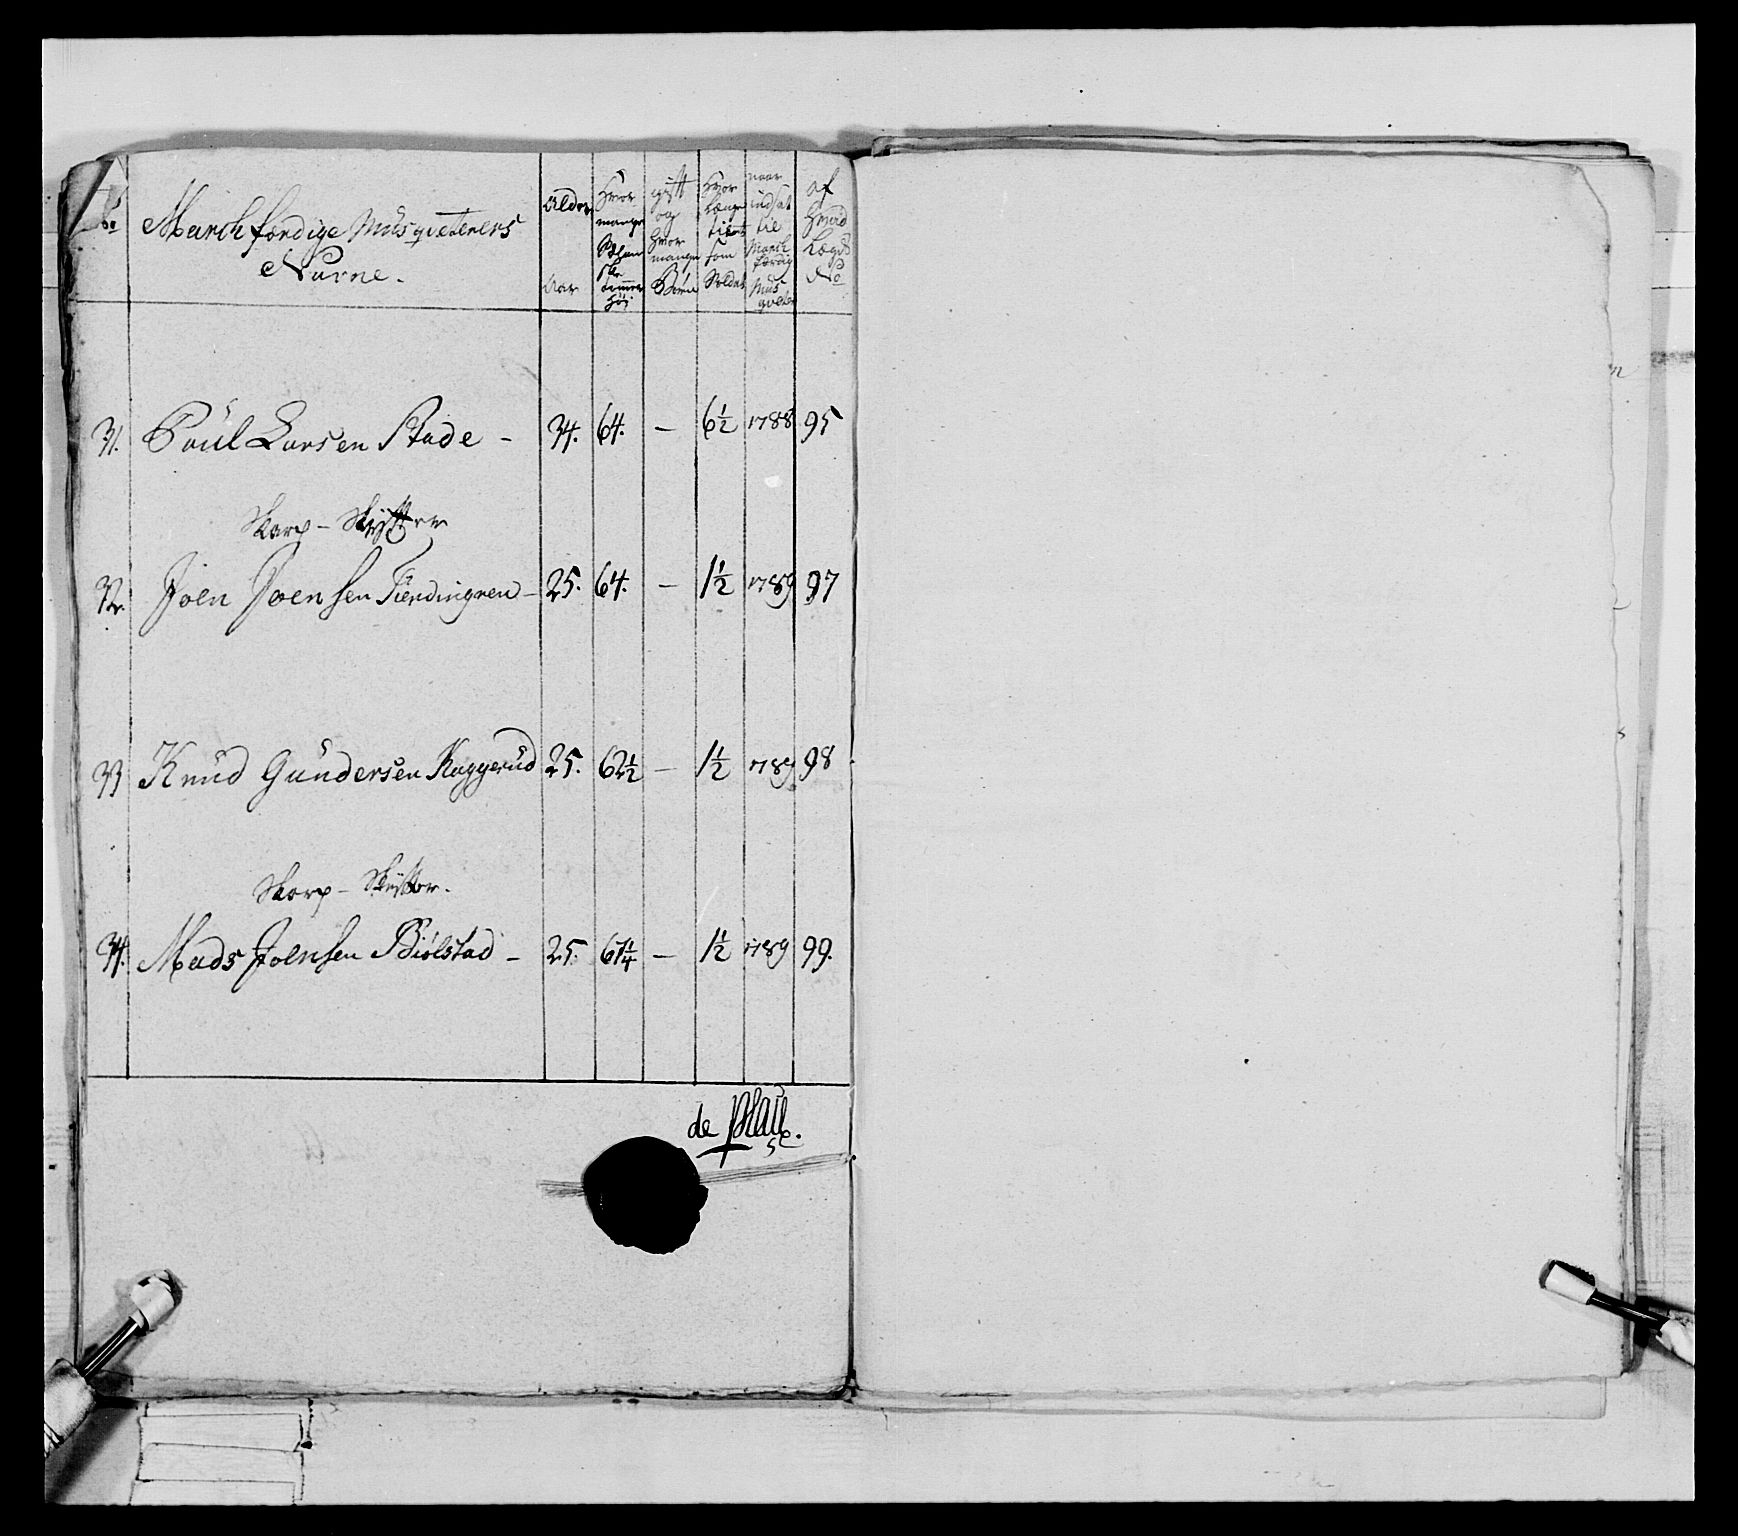 No
March færdige Musqveterers
Navne.
Alder
Aar
Hvor
mange
Tommer
Høj
gift
og
Hvor
mange
Børn
Hvor
længe
tient
som
Soldat
naar
indsat
til
March
færdig
Mus
qveter
af
Hvad
Lægds
No
31. Poul Larsen Stade - 34. 64. - 6½ 1788 95
Skarp - Skytter
32. Joen Joensen Fierdingren - 25. 64. - 1½ 1789 97
33 Knud Gundersen Kaggerud 25. 62½ - 1½ 1789 98
Skarp - Skytter.
34. Mads Joensen Biølstad - 25. 67¼ - 1½ 1789 99.
de